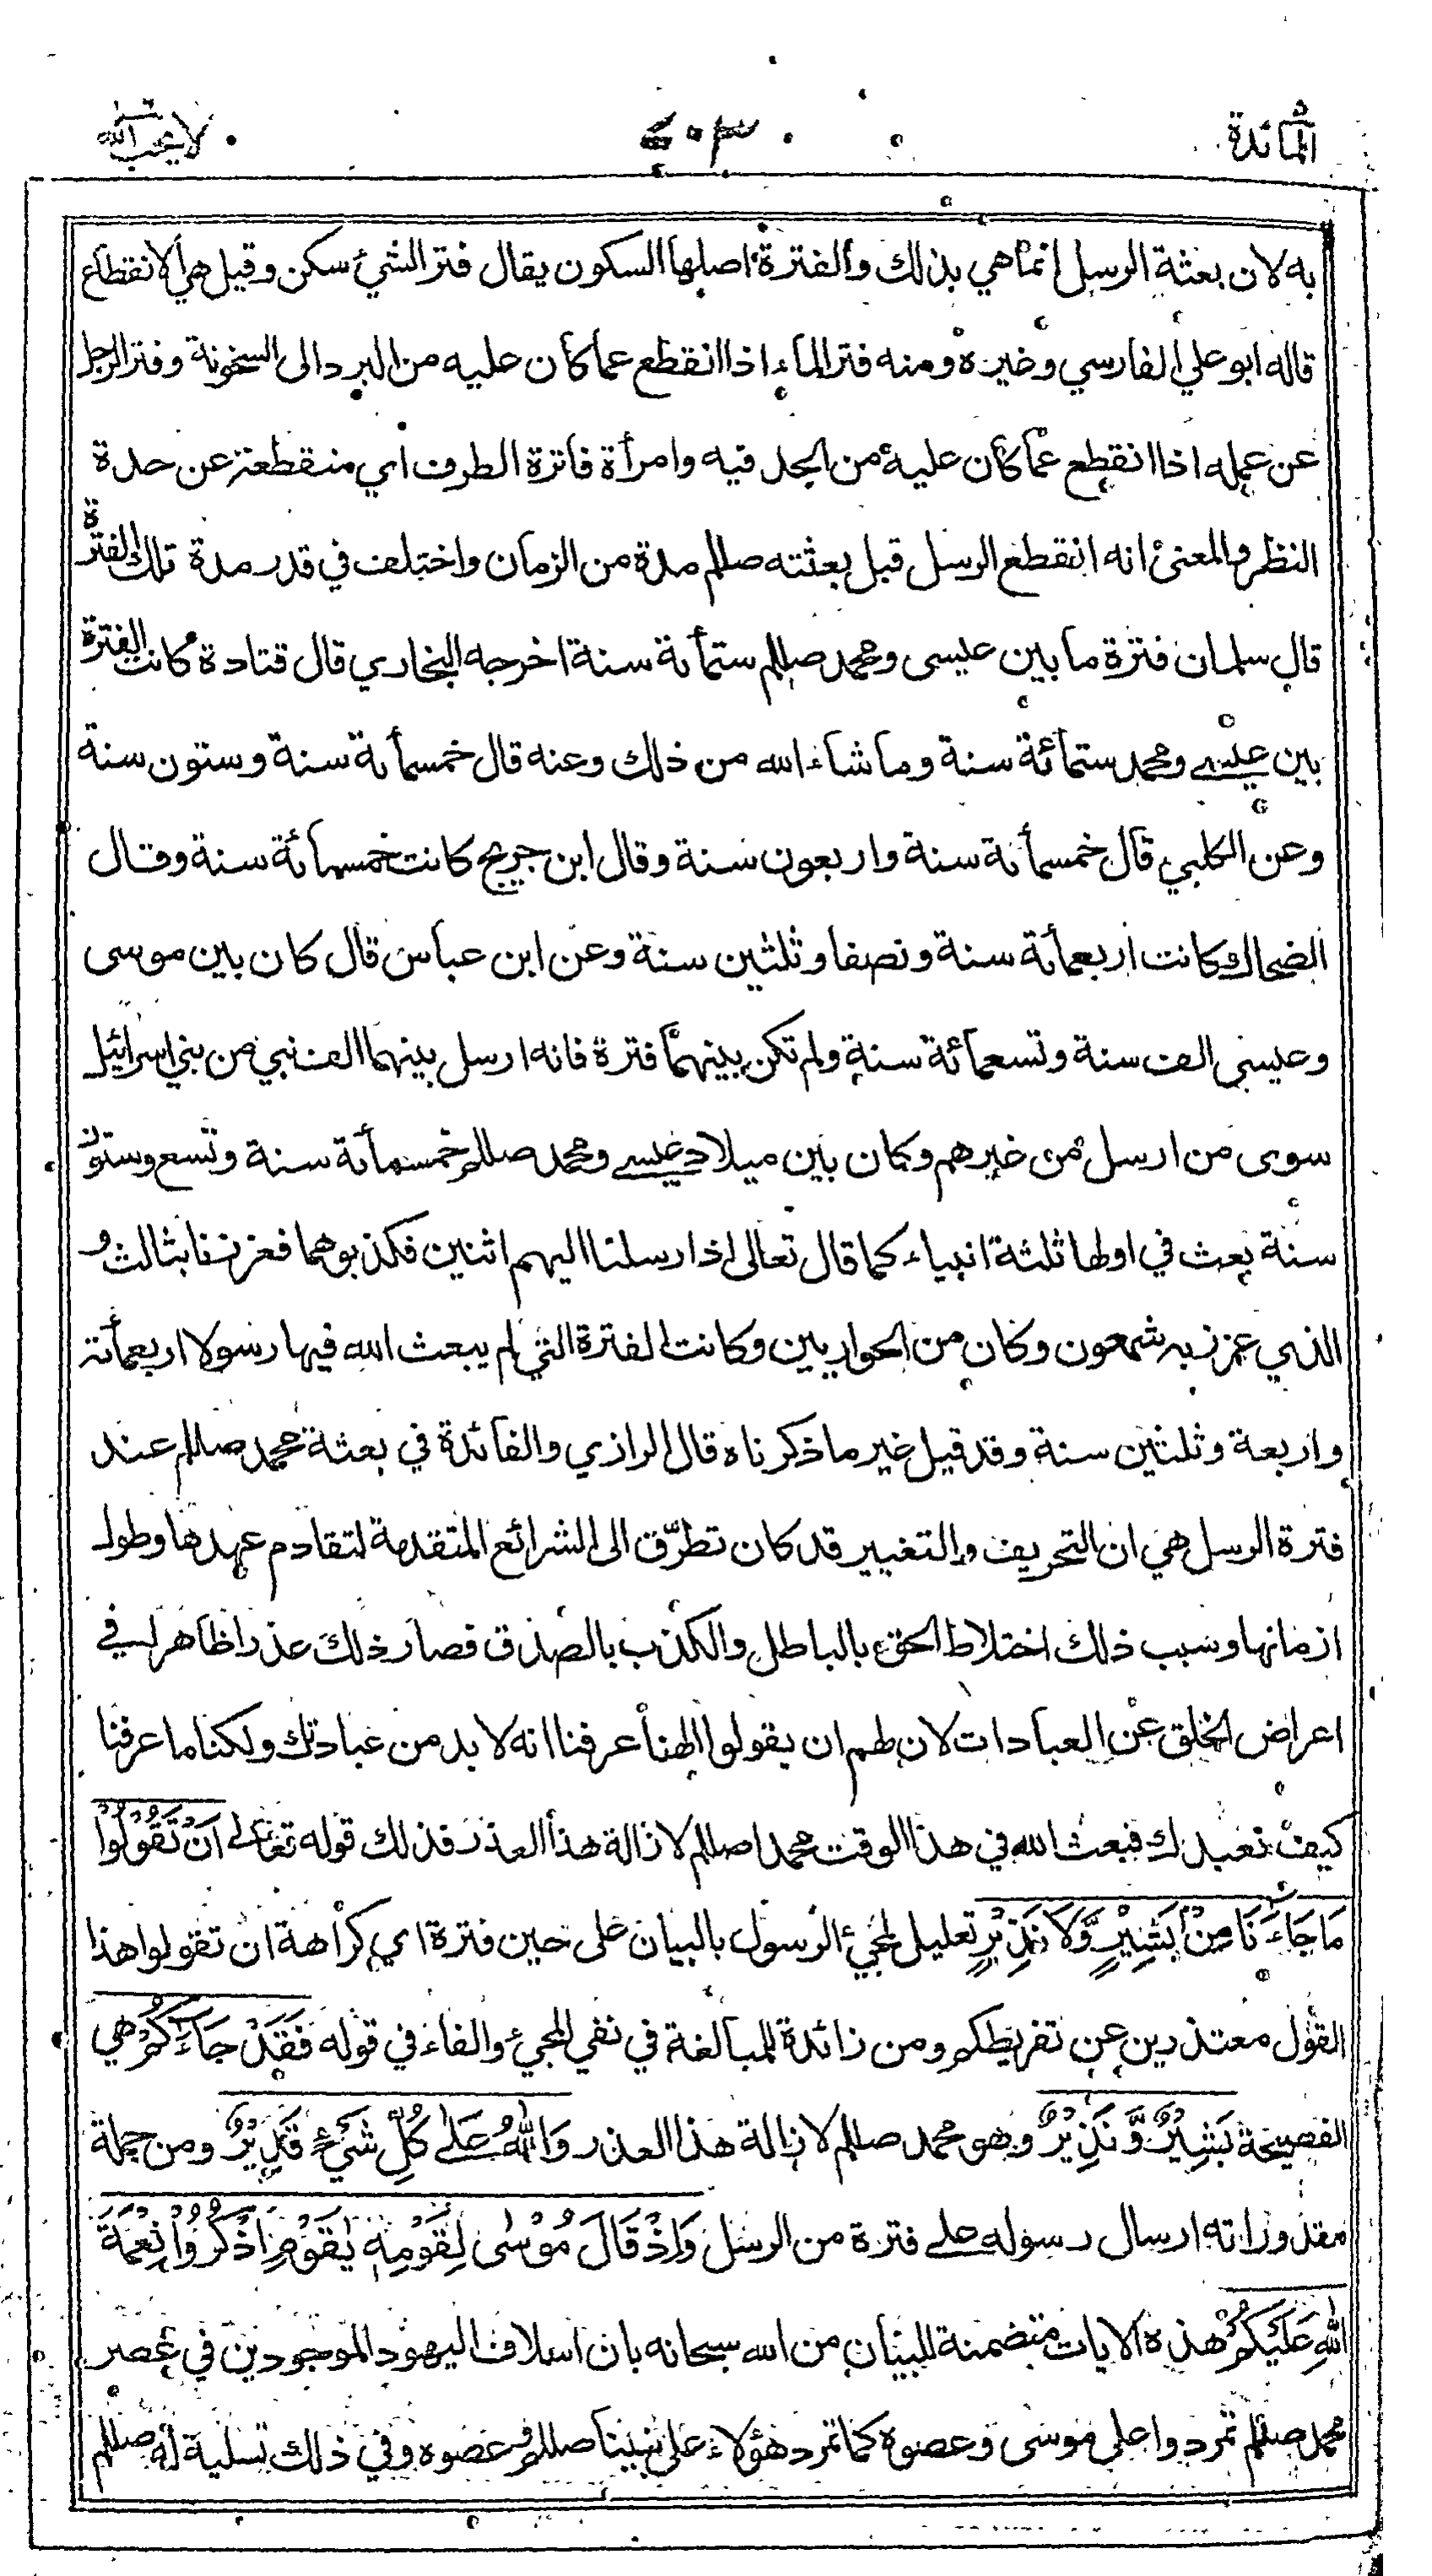 المائدة
لا يحب الله
به لان بعثة الرسل انما هي بذلك والفترة اصلها السكون يقال فتر الشيئ سكن وقيل هي الانقطاع
قاله ابو علي الفارسي وغيره ومنه فتر الماء اذا انقطع عما كان عليه من البرد الى السخونة وفتر الرجل
عن عمله اذا انقطع عما كان عليه من الجد فيه وامرأة فاترة الطرف اي منقطعة عن حدة
النظر والمعنى انه انقطع الرسل قبل بعثته صللم مدة من الزمان واختلف في قدر مدة تلك الفترة
قال سلمان فترة ما بين عيسى ومحمد صللم ستمأئة سنة اخرجه البخاري قال قتادة كانت الفترة
بين عيسى ومحمد ستمائة سنة وما شاء الله من ذلك وعنه قال خمسمأئة سنة وستون سنة
وعن الكلبي قال خمسمأئة سنة واربعون سنة وقال ابن جريج كانت خمسمائة سنة وقال
الضحاك وكانت اربعمأئة سنة ونصفا وثلثين سنة وعن ابن عباس قال كان بين موسى
وعيسى الف سنة وتسعمائة سنة ولم تكن بينهما فترة فانه ارسل بينهما الف نبي من بني اسرائيل
سوى من ارسل من غيرهم وكان بين ميلاد عيسى ومحمد صللم خمسمأئة سنة وتسع وستون
سنة بعث في اولها ثلثة انبياء كما قال تعالى اذ ارسلنا اليهم اثنين فكذبوهما فعززنا بثالث و
الذي عزز به شمعون وكان من الحواريين وكانت الفترة التي لم يبعث الله فيها رسولا اربعمأئة
واربعة وثلثين سنة وقد قيل غير ما ذكرناه قال الرازي والفائدة في بعثة محمد صللم عند
فترة الرسل هي ان التحريف والتغيير قد كان تطرّق الى الشرائع المتقدمة لتقادم عهدها وطول
ازمانها وسبب ذلك اختلاط الحق بالباطل والكذب بالصدق فصار ذلك عذرا ظاهرا في
اعراض الخلق عن العبادات لان لهم ان يقولوا الهنا عرفنا انه لا بد من عبادتك ولكنا ما عرفنا
كيف نعبدك فبعث الله في هذا الوقت محمدا صللم لازالة هذا العذر فذلك قوله تعالى اَنْ تَقُوْلُوْا
مَا جَاءَنَا مِنْ بَشِيْرٍ وَّلَا نَذِيْرٍ تعليل لمجيئ الرسول بالبيان على حين فترة اي كراهة ان تقولوا هذا
القول معتذرين عن تفريطكم ومن زائدة للمبالغة في نفي المجيئ والفاء في قوله فَقَدْ جَاءَكُمْ هي
الفصيحة بَشِيْرٌ وَّنَذِيْرٌ وهو محمد صللم لازالة هذا العذر وَاللهُ عَلٰى كُلِّ شَيْءٍ قَدِيْرٌ ومن جملة
مقدوراته ارسال رسوله على فترة من الرسل وَاِذْ قَالَ مُوْسٰى لِقَوْمِهٖ يٰقَوْمِ اذْكُرُوْا نِعْمَةَ
اللهِ عَلَيْكُمْ هذه الايات متضمنة للبيان من الله سبحانه بان اسلاف اليهود الموجودين في عصر
محمد صللم تمردوا على موسى وعصوه كما تمرد هؤلاء على نبينا صللم وعصوه وفي ذلك تسلية له صللم